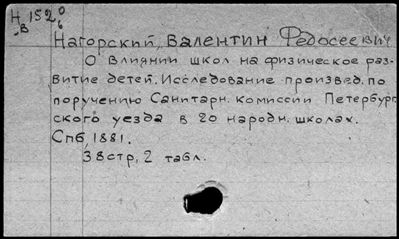 Н 152
В 6
Нагорский, Валентин Федосеевич
О влиянии школ на физическое раз-
витие детей. Исследование произвед. по
поручению Санитарн. комиссии Петербург-
ского уезда в 20 народн. школах.
Спб, 1881.
38стр, 2 табл.